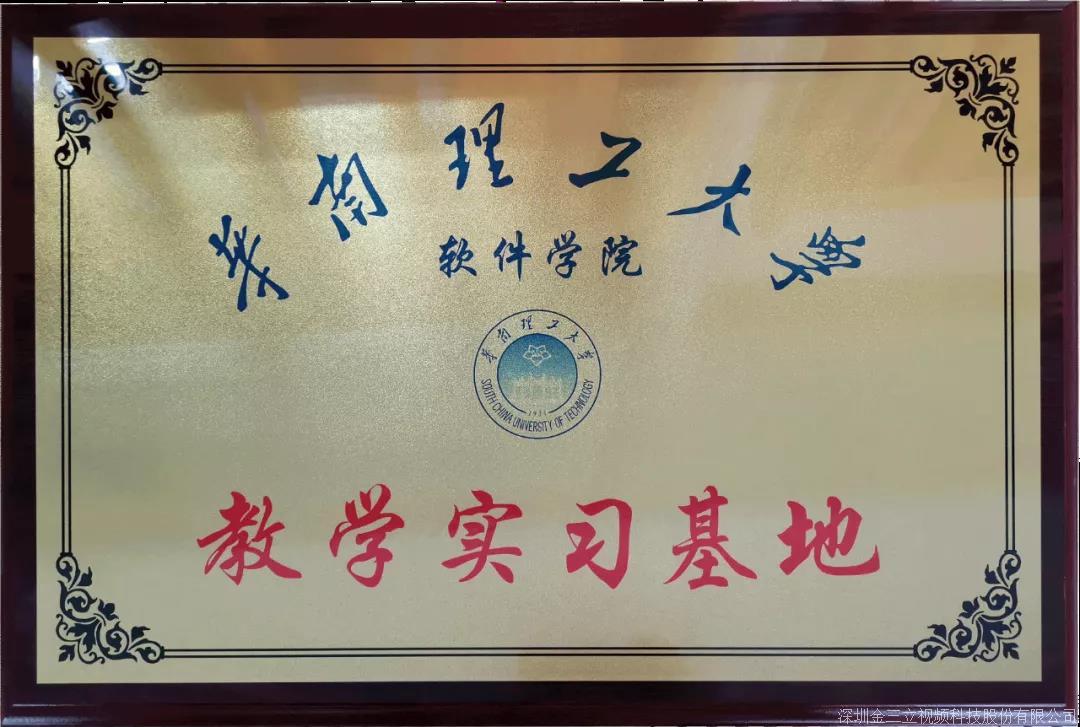 华南理工大学
软件学院
华南理工大学
SOUTH CHINA UNIVERSITY OF TECHNOLOGY
教学实习基地
深圳金三立视频科技股份有限公司